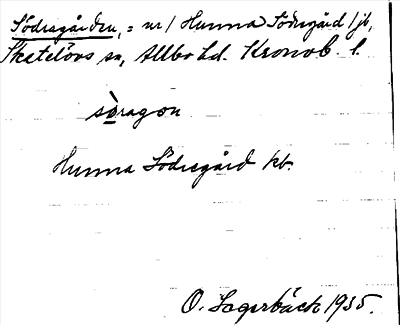 Södregården, = nr 1 Hunna Södregård 1 jb,
Skatelövs sn, Allbo hd. Kronob. l.
sòragon
Hunna Södregård kb.
O. Lagerbäck 1935.